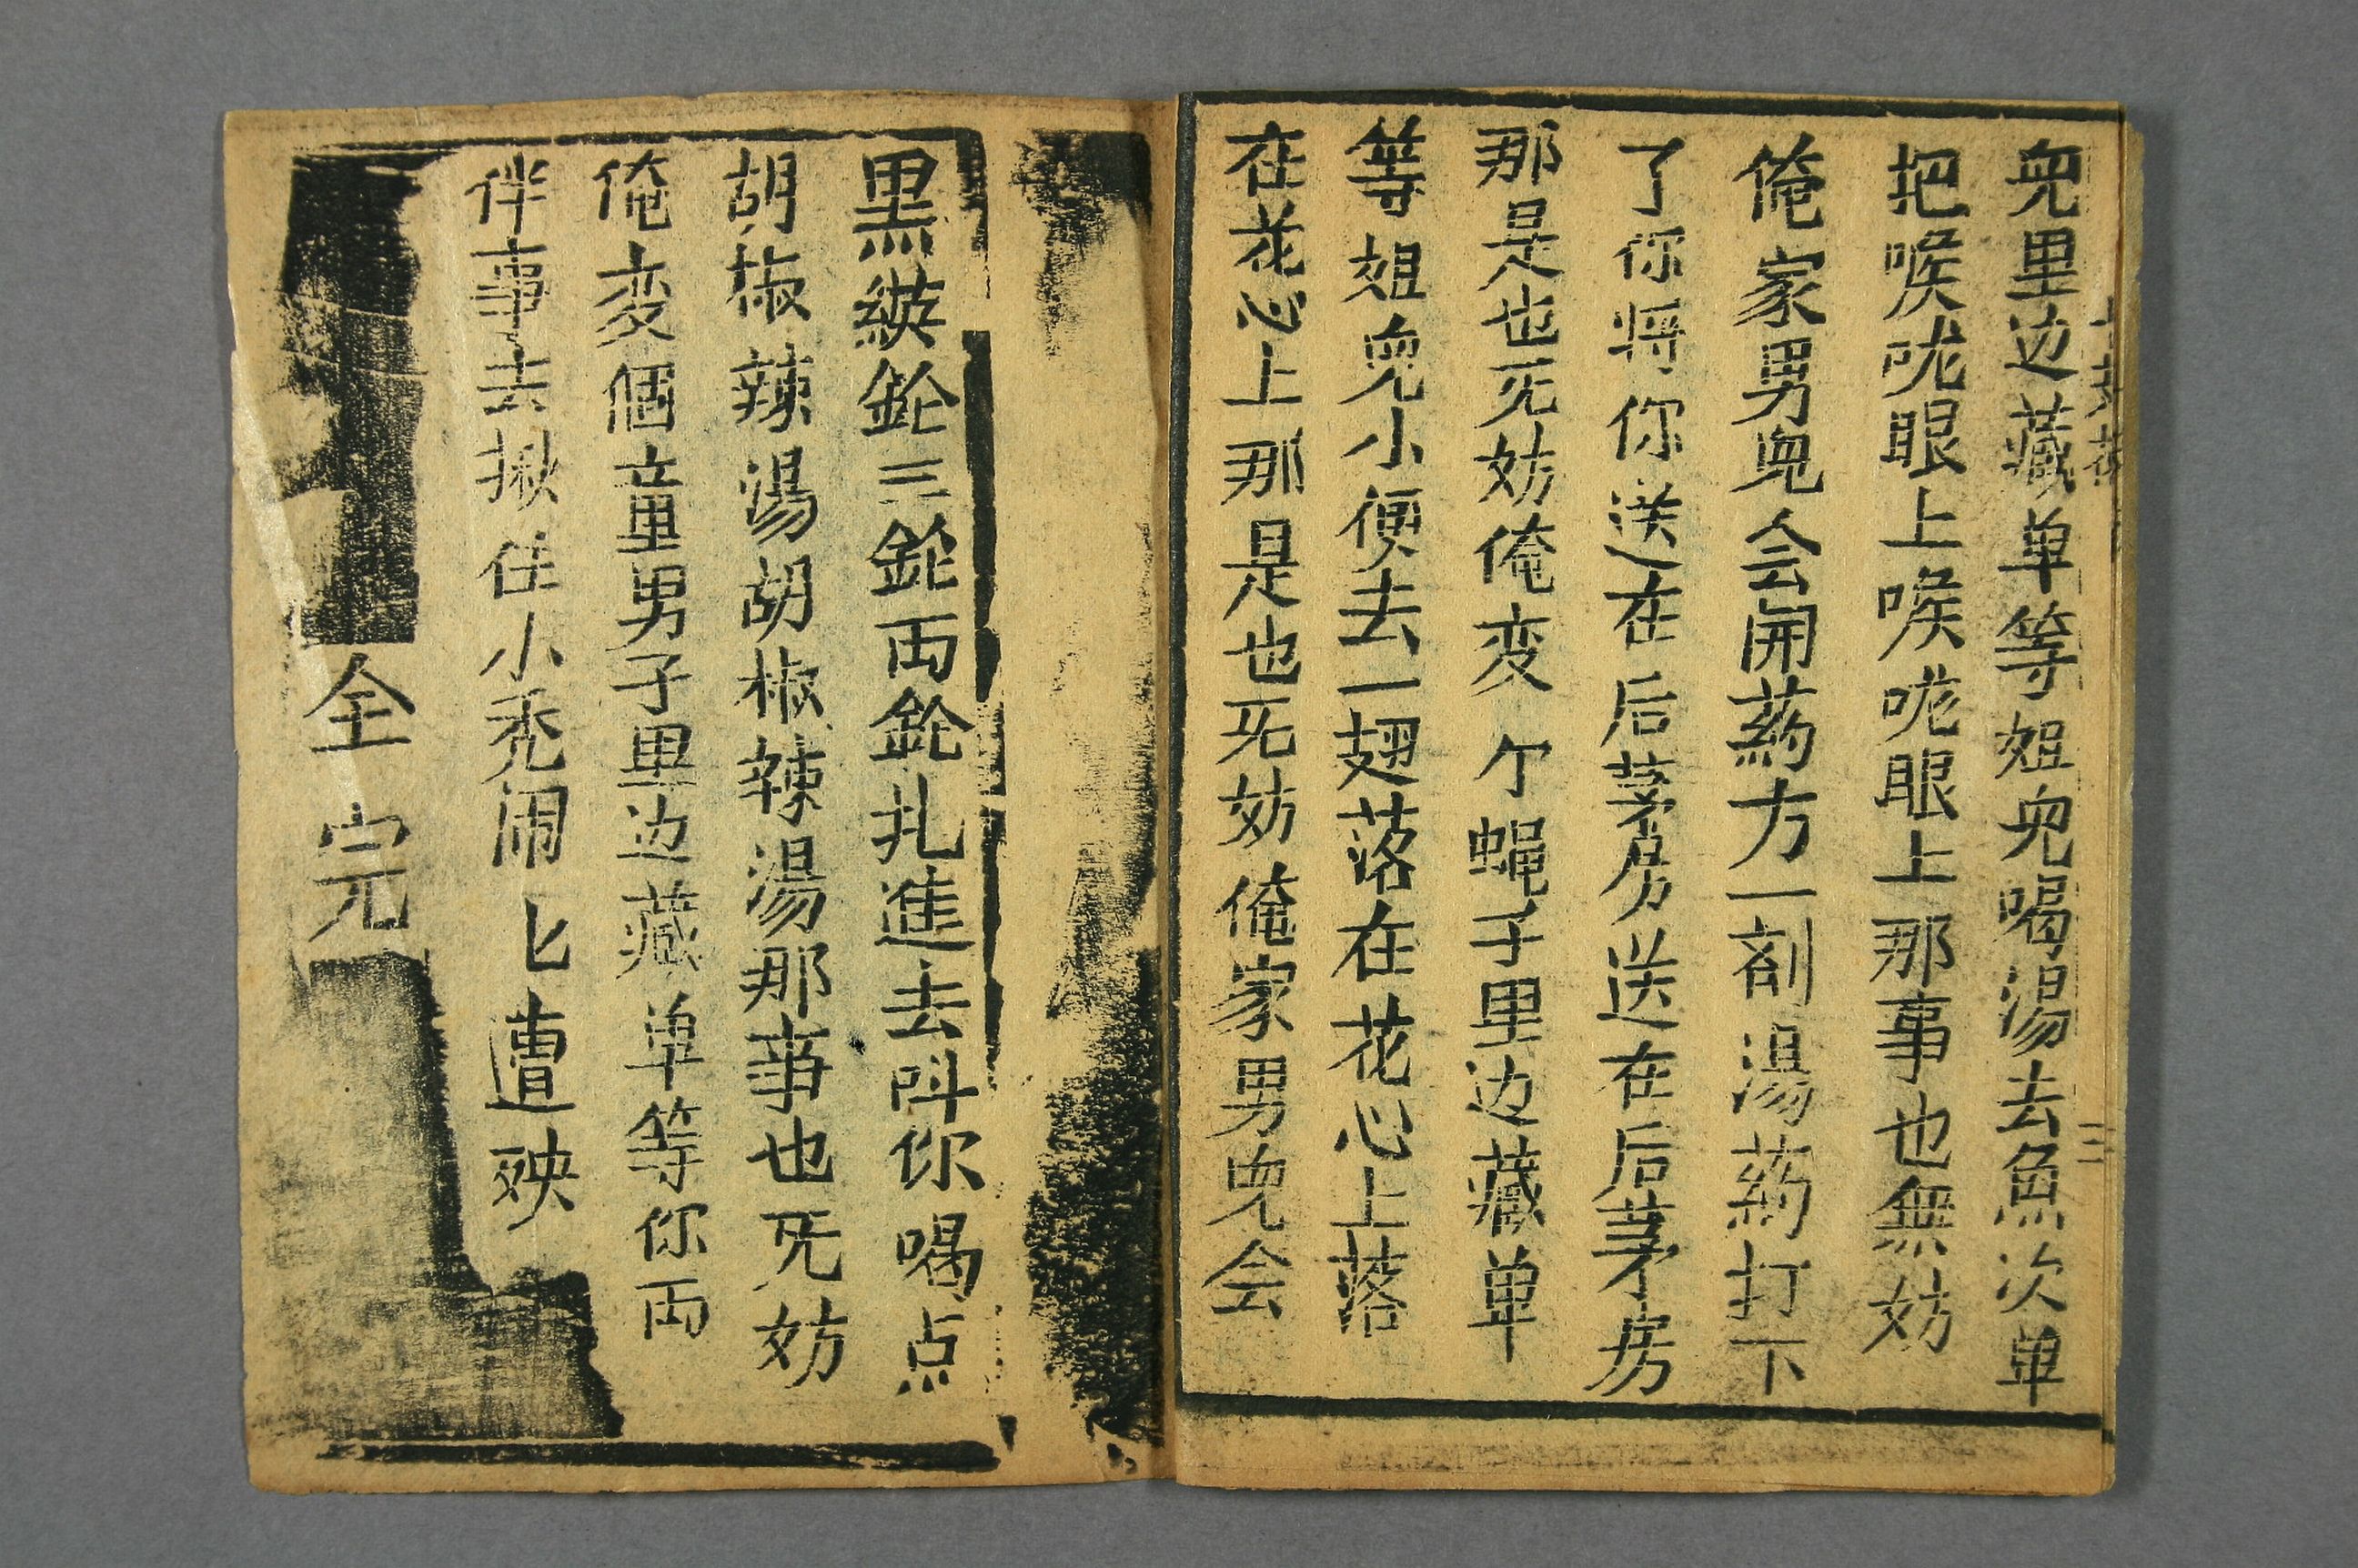 兒里边藏单等姐兒喝湯去魚次单
把喉咙眼上喉咙眼上那事也無妨
俺家男兒会開葯方一剤湯葯打下
了你将你送在后茅房送在后茅房
那是也无妨俺变个蝇子里边藏单
等姐兒小便去一翅落在花心上落
在花心上那是也无妨俺家男兒会
黒缨鎗三鎗両鎗扎進去呌你喝点
胡椒辣湯胡椒辣湯那事也无妨
俺变個童男子里边藏单等你両
伴事去揪住小秃闹匕遭殃
全完